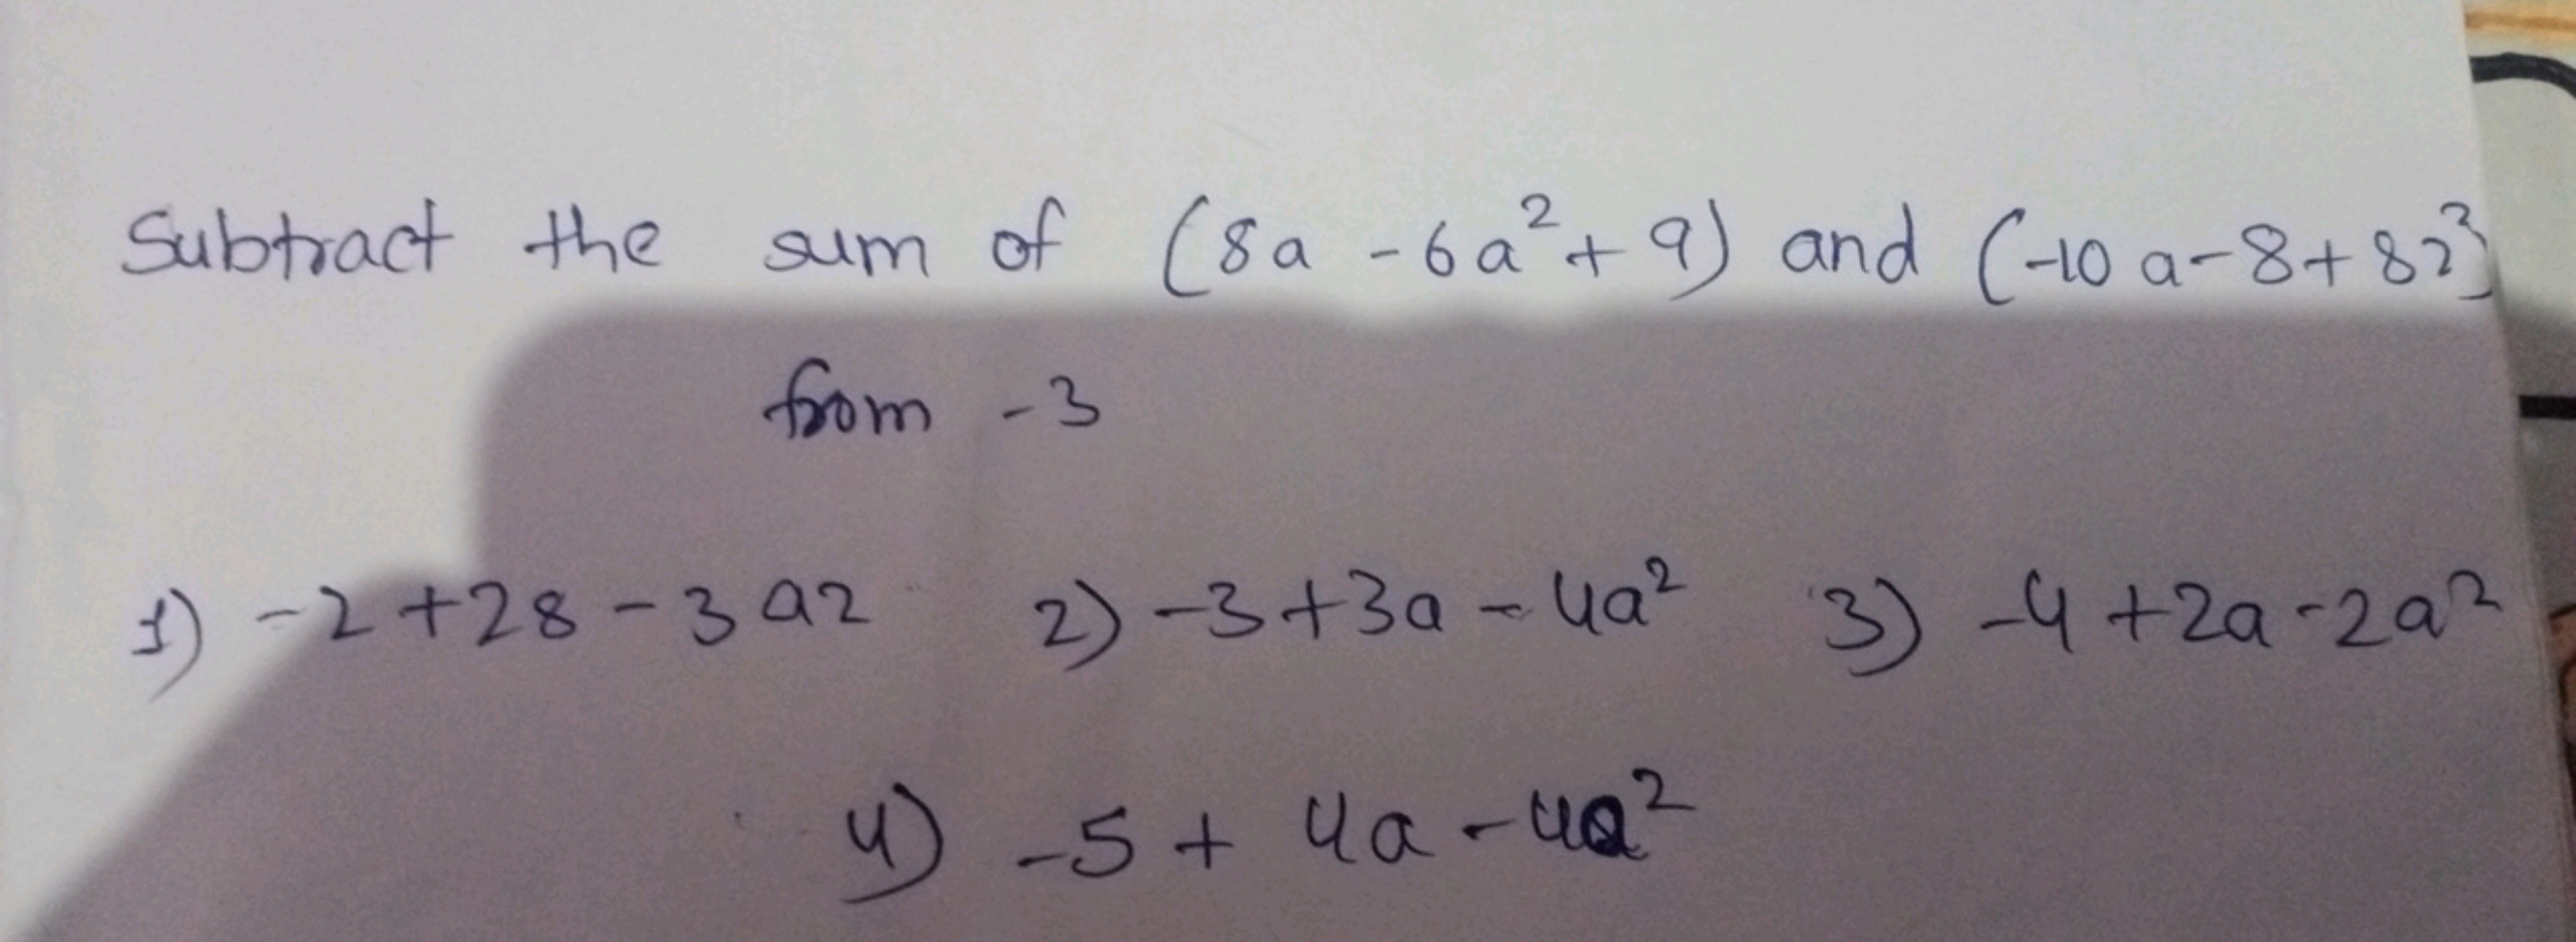 Subtract the sum of (8a - 6a² + 9) and (-10a - 8 + 82²)
from -3
1) -2 + 28 - 3a2 2) -3 + 3a - 4a² 3) -4 + 2a - 2a²
4) -5 + 4a - 4a²